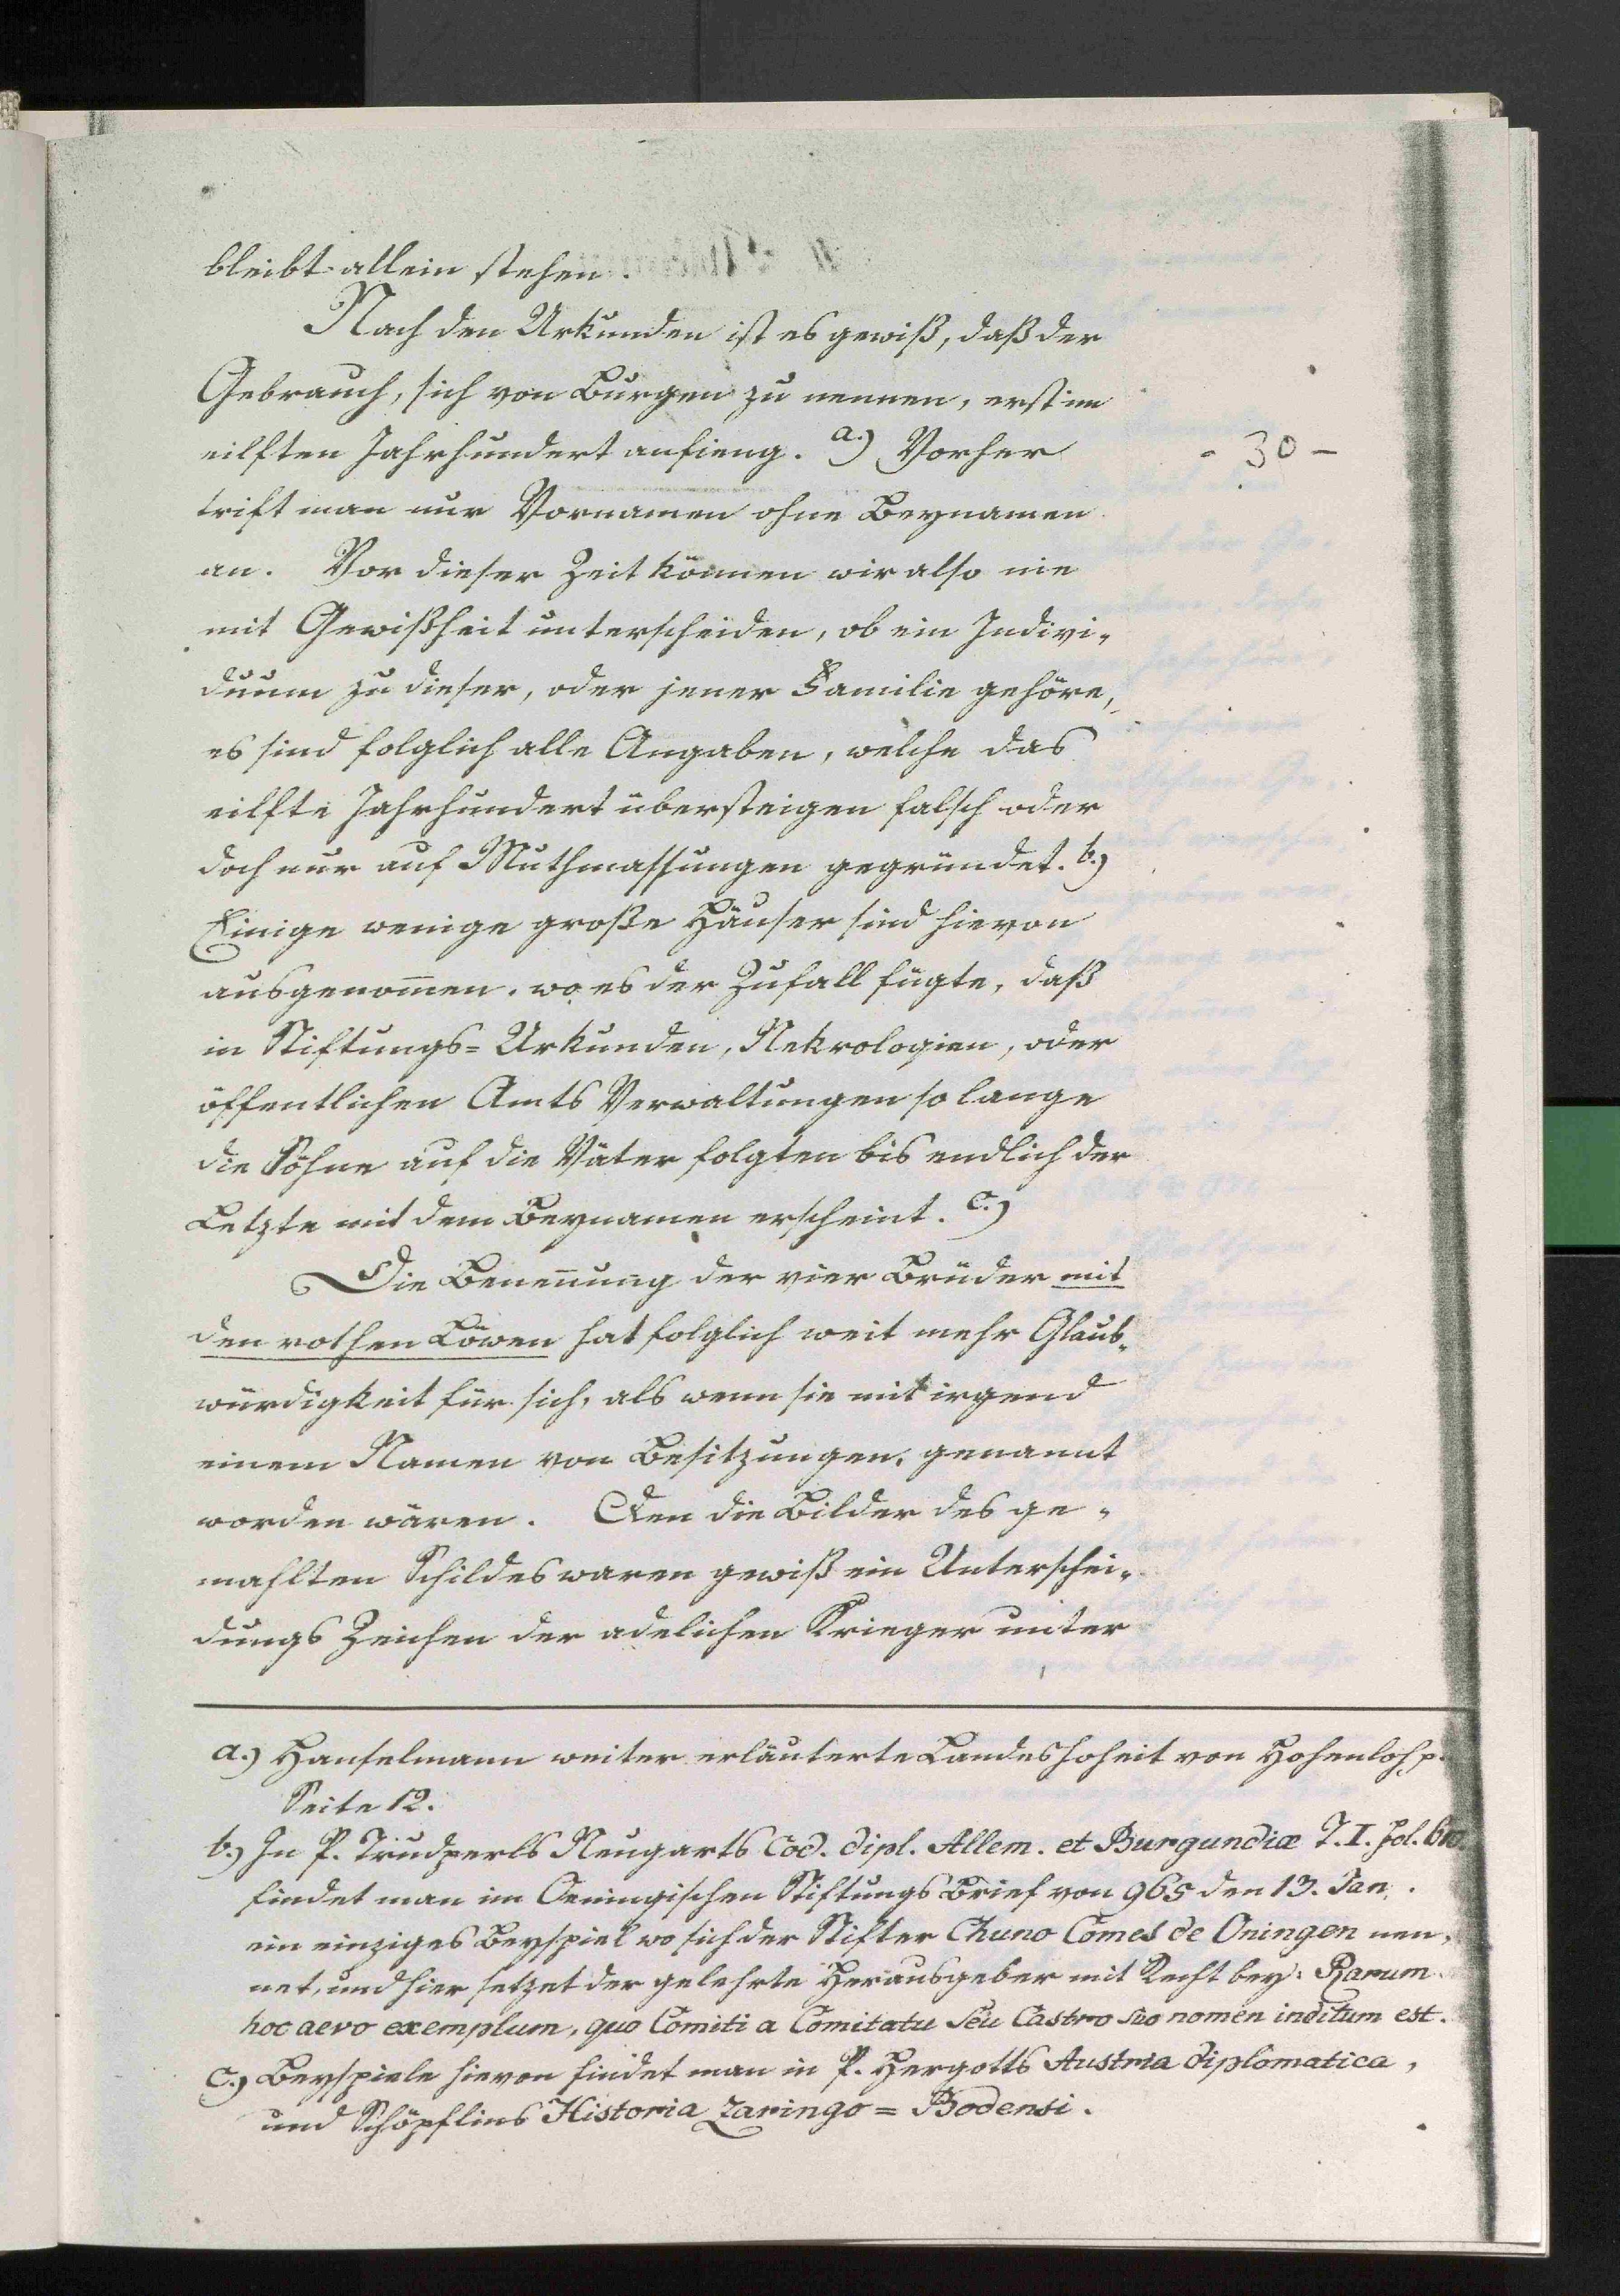 bleibt allein stehen.
Nach den Urkunden ist es gewiß, daß der
Gebrauch, sich von Burgen zu nennen, erst im
eilften Jahrhundert anfieng. a.) Vorher
- 30 -
trift man nur Vornamen ohne Beynamen
an. Vor dieser Zeit können wir also nie
mit Gewißheit unterscheiden, ob ein Indivi-
duum zu dieser, oder jener Familie gehöre,
es sind folglich alle Angaben, welche das
eilfte Jahrhundert übersteigen falsch oder
doch nur auf Muthmassungen gegründet. b.)
Einige wenige große Häuser sind hievon
ausgenom̅en, wo es der Zufall fügte, daß
in Stiftungs=Urkunden, Nekrologien, oder
öffentlichen Amts Verwaltungen so lange
die Söhne auf die Väter folgten bis endlich der
Letzte mit dem Beynamen erscheint. c.)
Die Benen̅ung der vier Brüder mit
den rothen Löwen hat folglich weit mehr Glaub-
würdigkeit für sich, als wenn sie mit irgend
einem Namen von Besitzungen, genannt
worden wären. Den die Bilder des ge-
mahlten Schildes waren gewiß ein Unterschei-
dungs Zeichen der adelichen Krieger unter
a.) Hanselmann weiter erläuterte Landeshoheit von Hohenloh p.
Seite 12.
b.) In P. Trudperts Neugarts Cod. dipl. Allem. et Burgundiæ T. I. fol.
findet man im Oeningischen Stiftungs Brief von 965 den 13. Jan.
ein einziges Beyspiel wo sich der Stifter Chuno Comes de Oningen nen-
net, und hier setzet der gelehrte Herausgeber mit Recht bey: Rarum
hoc aevo exemplum, quo Comiti a Comitatu seu Castro suo nomen inditum est.
c.) Beyspiele hievon findet man in P. Hergotts Austria diplomatica,
und Schöpflins Historia Zaringo=Bodensi.